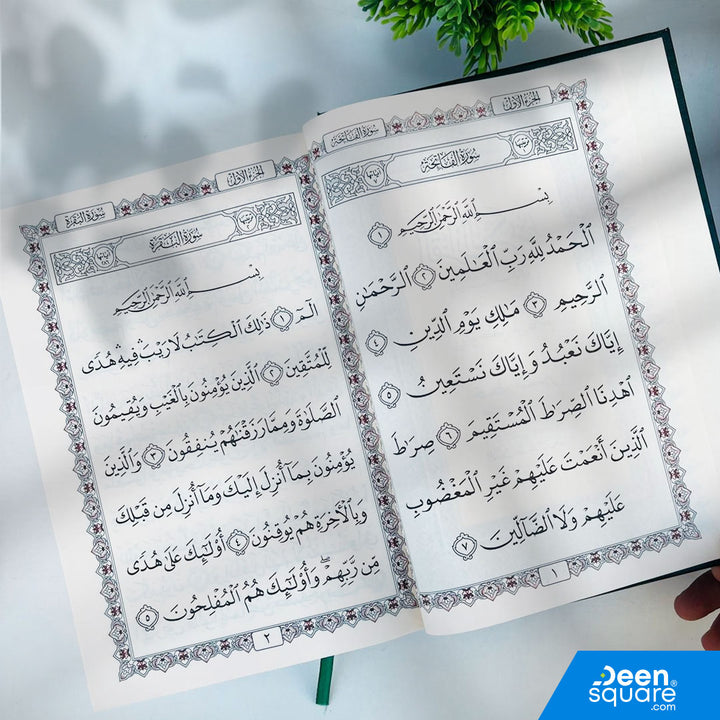 سورة الفاتحة
الجزء الأول
سُورَةُ الفَاتِحَةِ
بِسْمِ ٱللَّهِ ٱلرَّحْمَٰنِ ٱلرَّحِيمِ ١
ٱلْحَمْدُ لِلَّهِ رَبِّ ٱلْعَٰلَمِينَ ٢ ٱلرَّحْمَٰنِ
ٱلرَّحِيمِ ٣ مَٰلِكِ يَوْمِ ٱلدِّينِ ٤
إِيَّاكَ نَعْبُدُ وَإِيَّاكَ نَسْتَعِينُ ٥
ٱهْدِنَا ٱلصِّرَٰطَ ٱلْمُسْتَقِيمَ ٦ صِرَٰطَ
ٱلَّذِينَ أَنْعَمْتَ عَلَيْهِمْ غَيْرِ ٱلْمَغْضُوبِ
عَلَيْهِمْ وَلَا ٱلضَّآلِّينَ ٧
١
الجزء الأول
سورة البقرة
سُورَةُ البَقَرَةِ
بِسْمِ ٱللَّهِ ٱلرَّحْمَٰنِ ٱلرَّحِيمِ
الٓمٓ ١ ذَٰلِكَ ٱلْكِتَٰبُ لَا رَيْبَ ۛ فِيهِ ۛ هُدًى
لِّلْمُتَّقِينَ ٢ ٱلَّذِينَ يُؤْمِنُونَ بِٱلْغَيْبِ وَيُقِيمُونَ
ٱلصَّلَوٰةَ وَمِمَّا رَزَقْنَٰهُمْ يُنفِقُونَ ٣ وَٱلَّذِينَ
يُؤْمِنُونَ بِمَآ أُنزِلَ إِلَيْكَ وَمَآ أُنزِلَ مِن قَبْلِكَ
وَبِٱلْأَخِرَةِ هُمْ يُوقِنُونَ ٤ أُو۟لَٰٓئِكَ عَلَىٰ هُدًى
مِّن رَّبِّهِمْ ۖ وَأُو۟لَٰٓئِكَ هُمُ ٱلْمُفْلِحُونَ ٥
٢
Deen
square
.com